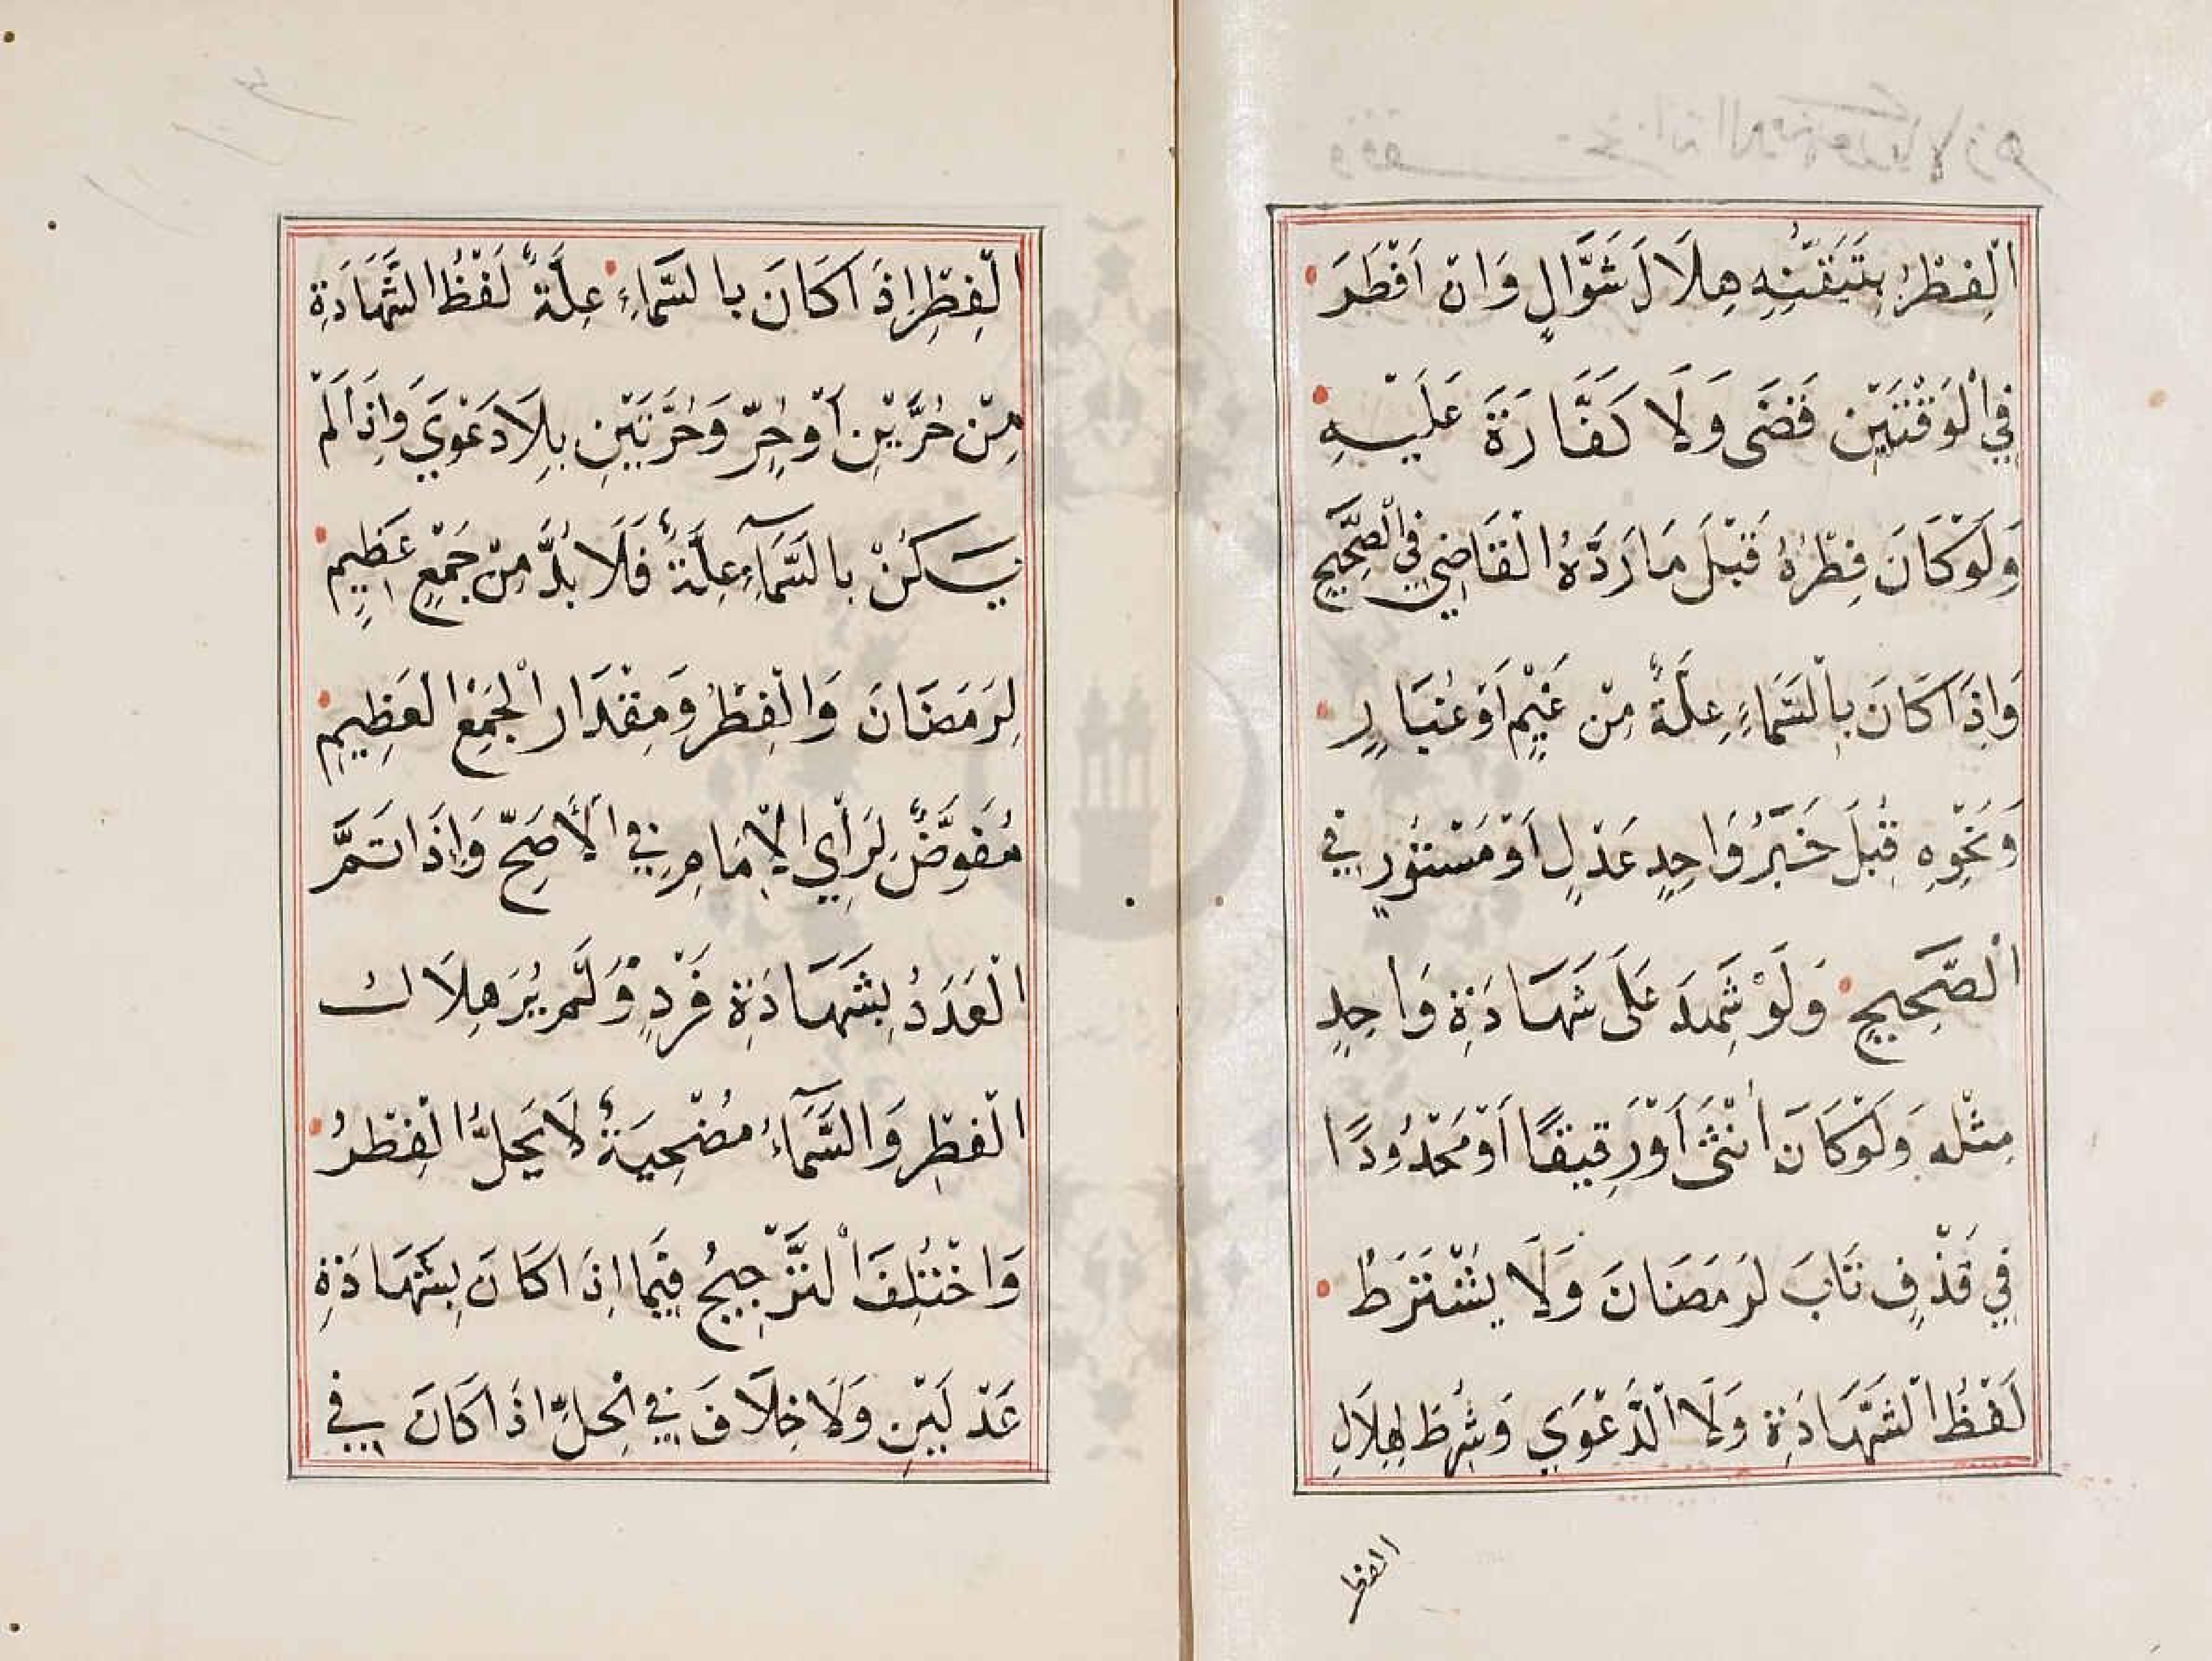 الْفِطْرُ بِتَيَقُّنِهِ هِلَالَ شَوَّالٍ وَاِنْ اَفْطَرَ
فِي الْوَقْتَيْنِ قَضَى وَلَا كَفَّارَةَ عَلَيْهِ
وَلَوْ كَانَ فِطْرُهُ قَبْلَ مَا رَدَّهُ الْقَاضِي فِي الْصَّحِيْحِ
وَاِذَا كَانَ بِالْسَّمَاءِ عِلَّةٌ مِنْ غَيْمٍ اَوْ غُبَارٍ
وَنَحْوِهِ قُبِلَ خَبَرُ وَاحِدٍ عَدْلٍ اَوْ مَسْتُوْرٍ فِي
الْصَّحِيحِ وَلَوْ شَهِدَ عَلَى شَهَادَةِ وَاحِدٍ
مِثْلِهِ وَلَوْ كَانَ اُنْثَى اَوْ رَقِيقًا اَوْ مَحْدُودًا
فِي قَذْفٍ تَابَ لِرَمَضَانَ وَلَا يُشْتَرَطُ
لَفْظُ الْشَّهَادَةِ وَلَا الْدَّعْوَي وَشُرِطَ لِهِلَالِ
الفطر
الْفِطْرِ اِذَا كَانَ بِالسَّمَاءِ عِلَّةٌ لَفْظُ الشَّهَادَةِ
مِنْ حُرَّيْنِ اَوْ حُرٍّ وَحُرَّتَيْنِ بِلَا دَعْوَي وَاِذَا لَمْ
يَكُنْ بِالسَّمَآءِ عِلَّةٌ فَلَا بُدَّ مِنْ جَمْعٍ عَظِيمٍ
لِرَمَضَانَ وَالْفِطْرُ وَمِقْدَارُ الْجَمْعِ الْعَظِيمِ
مُفَوَّضٌ لِرَأيِ الْاِمَامِ فِي الْأَصَحِّ وَاِذَا تَمَّ
الْعَدَدُ بِشَهَادَةِ فَرْدٍ وَلَمْ يُرَ هِلَالُ
الْفِطْرِ وَالسَّمَآءُ مُصْحِيَةٌ لَا يَحِلُّ الْفِطْرُ
وَاخْتُلِفَ الْتَّرْجِيحُ فِيمَا اِذَا كَانَ بِشَهَادَةِ
عَدْلَيْنِ وَلَا خِلَافَ فِي الْحِلِّ اذَا كَانَ فِي